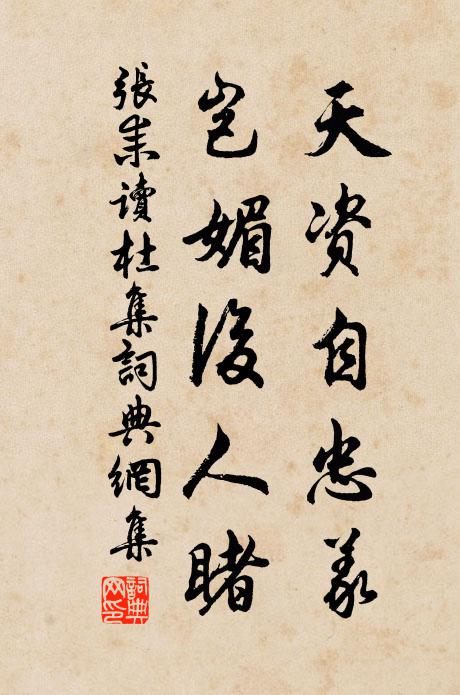 天資自忠義
豈媚後人睹
張耒讀杜集詞典網集
詞典網印